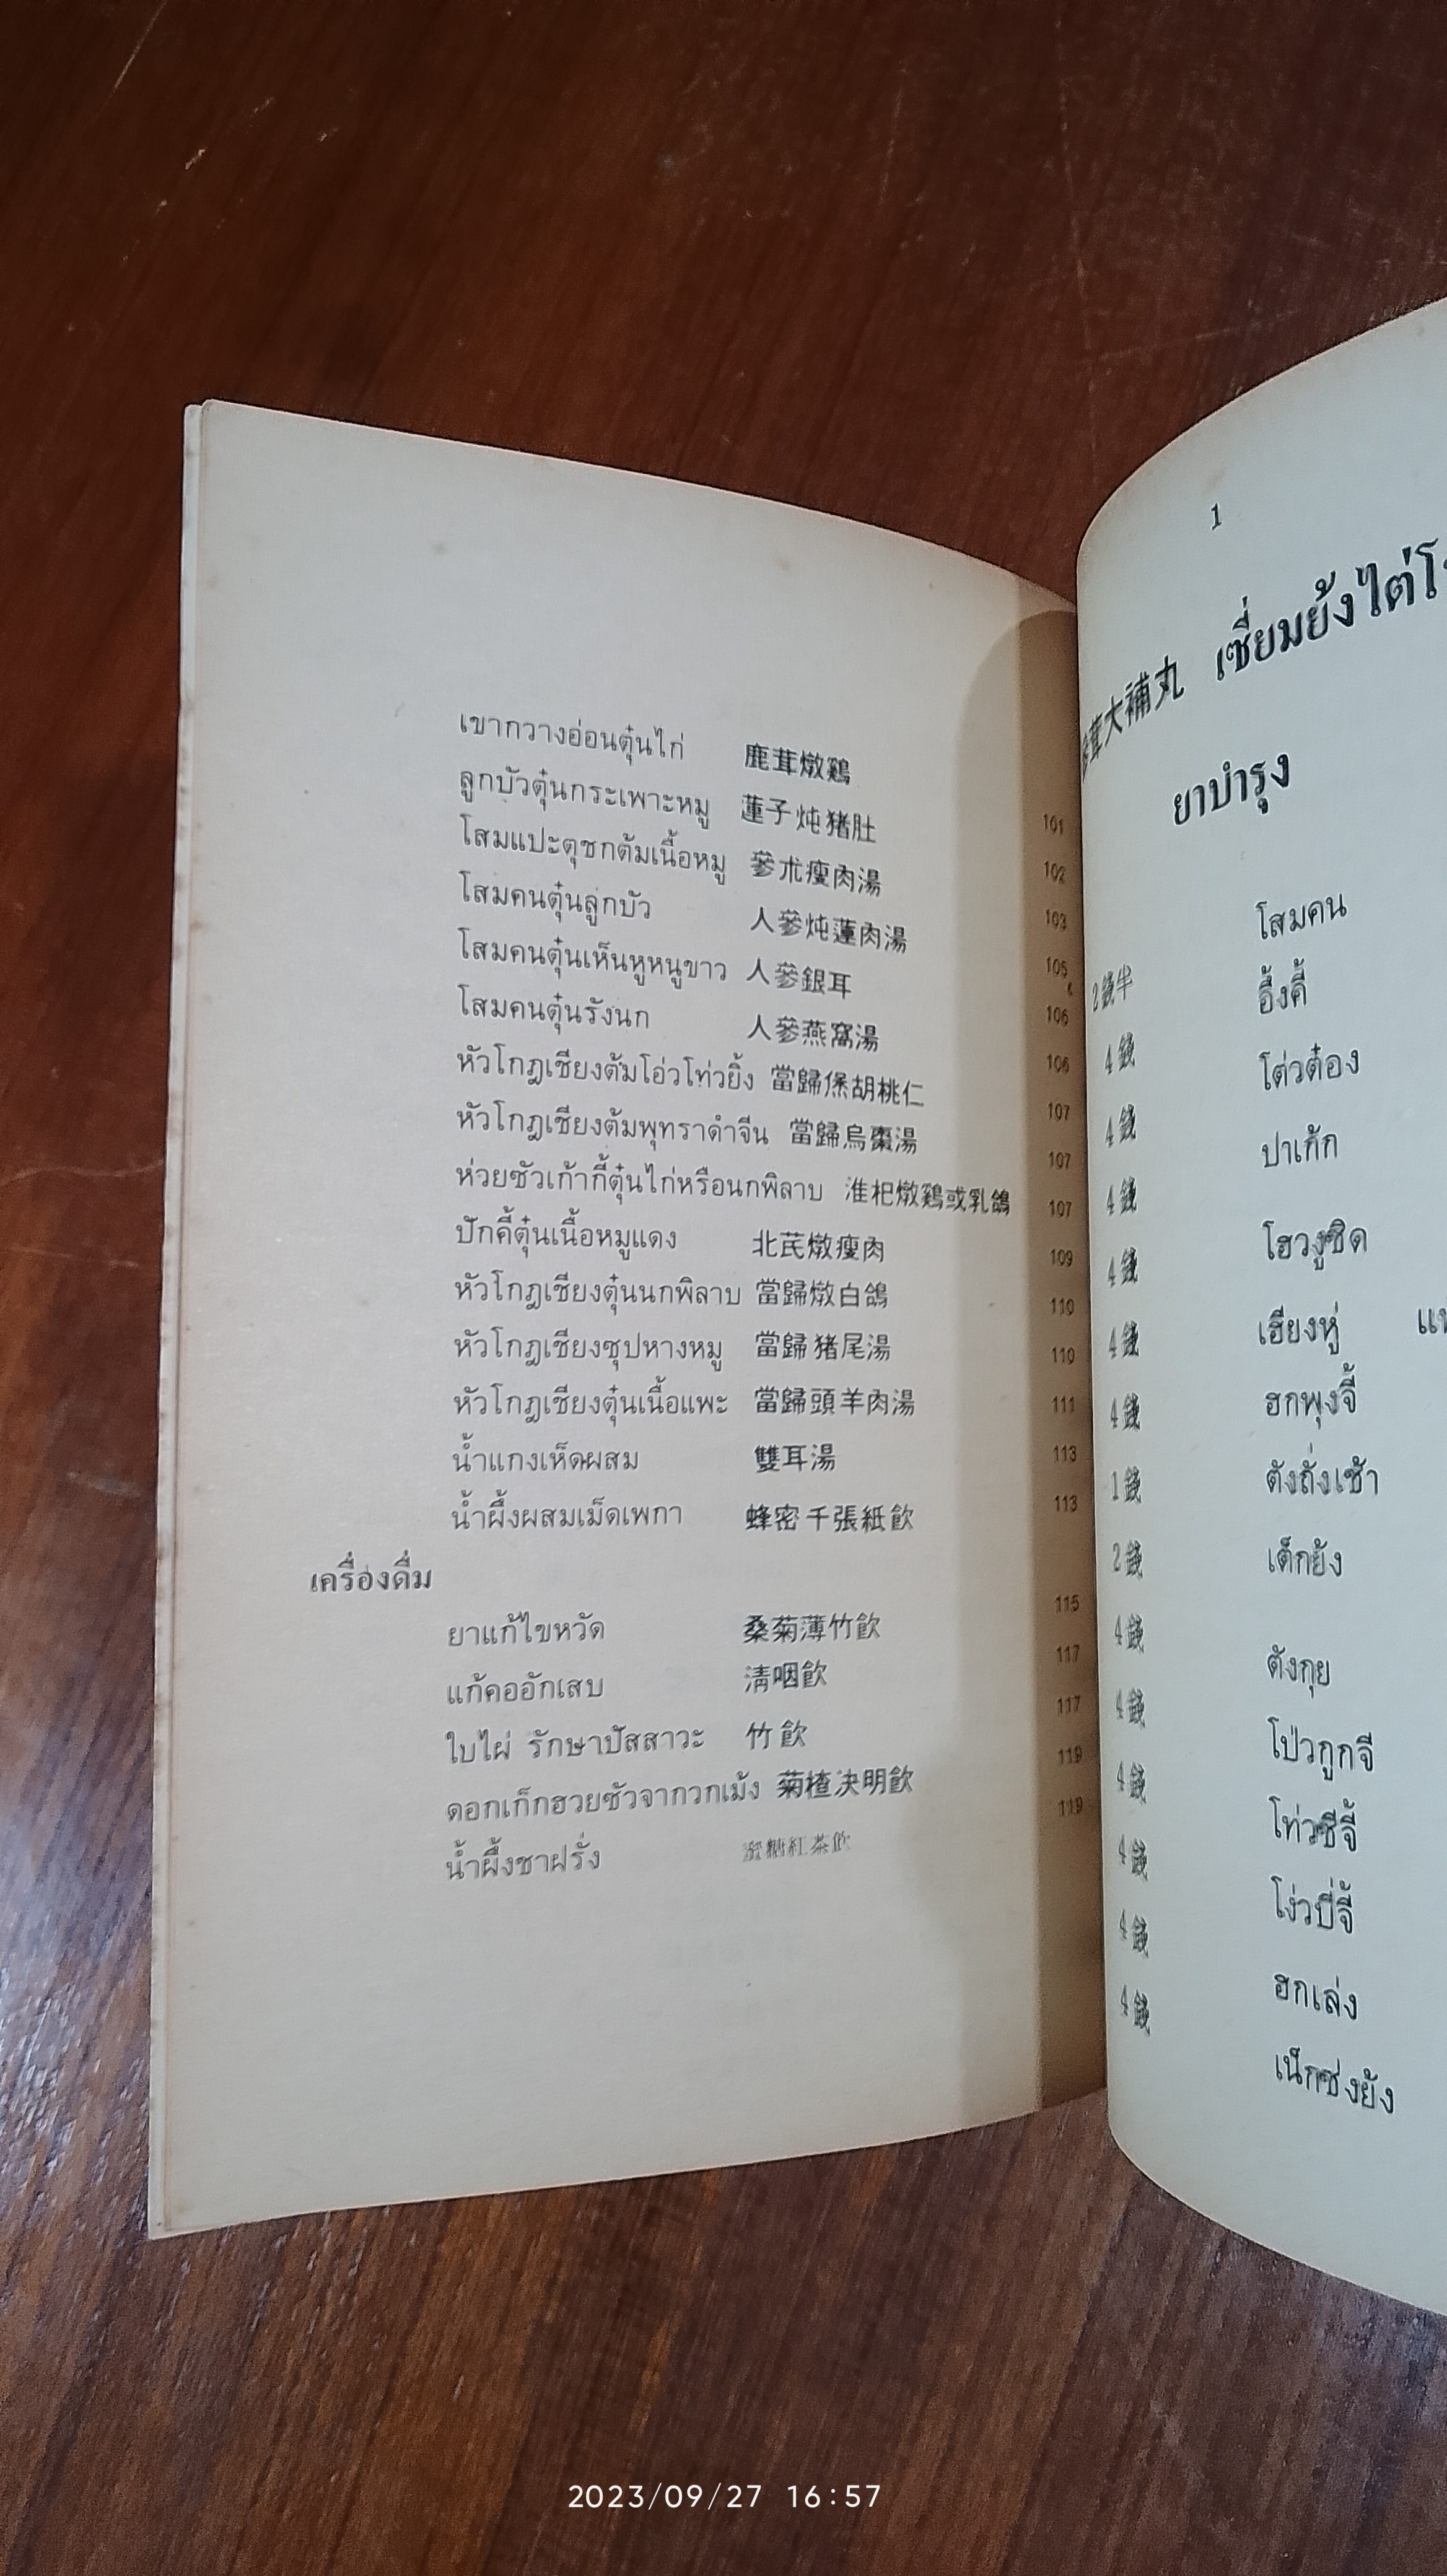 เขากวางอ่อนตุ๋นไก่ 鹿茸燉鷄 101
ลูกบัวตุ๋นกระเพาะหมู 蓮子炖猪肚 102
โสมแปะตุชกต้มเนื้อหมู 蔘朮瘦肉湯 103
โสมคนตุ๋นลูกบัว 人蔘炖蓮肉湯 105
โสมคนตุ๋นเห็นหูหนูขาว 人蔘銀耳 106
โสมคนตุ๋นรังนก 人蔘燕窩湯 106
หัวโกฎเชียงต้มโอ่วโท่วยิ้ง 當歸煲胡桃仁 107
หัวโกฎเชียงต้มพุทราดำจีน 當歸烏棗湯 107
ห่วยซัวเก้ากี้ตุ๋นไก่หรือนกพิลาบ 淮杞燉鷄或乳鴿 107
ปักคี้ตุ๋นเนื้อหมูแดง 北芪燉瘦肉 109
หัวโกฎเชียงตุ๋นนกพิลาบ 當歸燉白鴿 110
หัวโกฎเชียงซุปหางหมู 當歸猪尾湯 110
หัวโกฎเชียงตุ๋นเนื้อแพะ 當歸頭羊肉湯 111
น้ำแกงเห็ดผสม 雙耳湯 113
น้ำผึ้งผสมเม็ดเพกา 蜂密千張紙飲 113
เครื่องดื่ม
ยาแก้ไขหวัด 桑菊薄竹飲 115
แก้คออักเสบ 清咽飲 117
ใบไผ่ รักษาปัสสาวะ 竹飲 117
ดอกเก็กฮวยซัวจากวกเม้ง 菊楂决明飲 119
น้ำผึ้งชาฝรั่ง 蜜糖紅茶飲 119
1
茸大補丸 เซี่ยมย้งไต่
ยาบำรุง
2錢半 โสมคน
4錢 อึ้งคี้
4錢 โต่วต๋อง
4錢 ปาเก้ก
4錢 โฮวงูซิด
4錢 เฮียงหู่
4錢 ฮกพุงจี้
1錢 ตังถั่งเช้า
2錢 เต็กย้ง
4錢 ตังกุย
4錢 โป่วกูกจี
4錢 โท่วซีจี้
4錢 โง่วบี่จี้
4錢 ฮกเล่ง
4錢 เน็กซ่งย้ง
2023/09/27 16:57